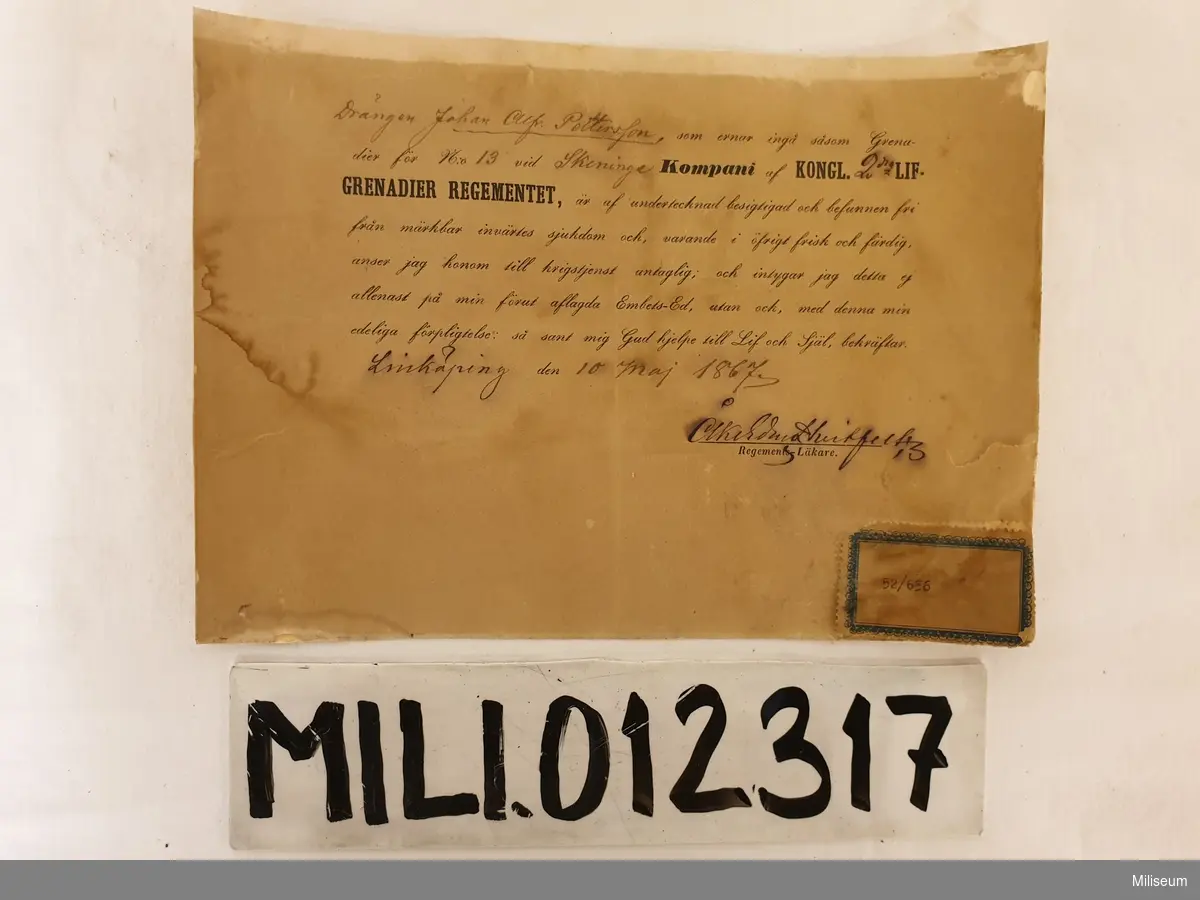 Drängen Johan Alfr. Pettersson, som ernar ingå såsom Grena-
dier för N:o 13 vid Skeninge Kompani af KONGL. 2dra LIF-
GRENADIER REGEMENTET, är af undertecknad besigtigad och befunnen fri
från märkbar invärtes sjukdom och, varande i öfrigt frisk och färdig,
anser jag honom till krigstjenst antaglig; och intygar jag detta ej
allenast på min förut aflagda Embets-Ed, utan och, med denna min
edeliga förpligtelse: så sant mig Gud hjelpe till Lif och Själ, bekräftar.
Linköping den 10 Maj 1867.
Regements-Läkare.
52/656
MILI.012317
Miliseum